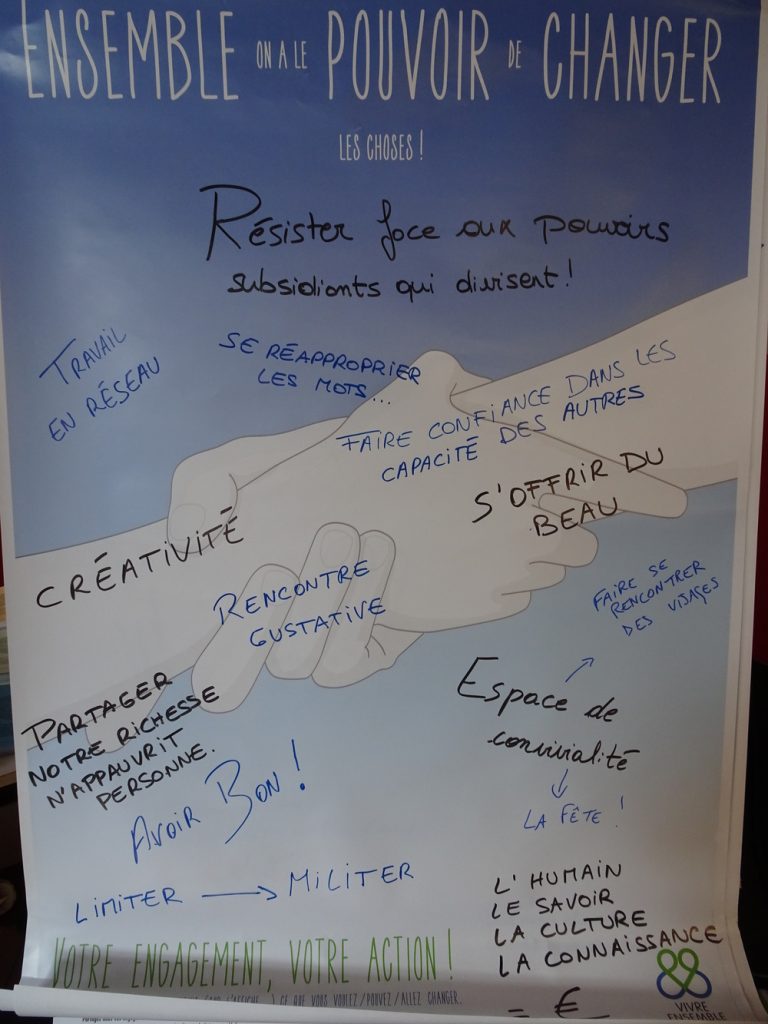 ENSEMBLE ON A LE POUVOIR DE CHANGER
LES CHOSES !
Résister face aux pouvoirs
subsidiants qui divisent !
TRAVAIL
EN RÉSEAU
SE RÉAPPROPRIER
LES MOTS...
FAIRE CONFIANCE DANS LES
CAPACITÉ DES AUTRES
S'OFFRIR DU
BEAU
CRÉATIVITÉ
RENCONTRE
GUSTATIVE
FAIRE SE
RENCONTRER
DES VISAGES
PARTAGER
NOTRE RICHESSE
N'APPAUVRIT
PERSONNE.
Espace de
convivialité
LA FÊTE !
AVOIR BON !
LIMITER → MILITER
L'HUMAIN
LE SAVOIR
LA CULTURE
LA CONNAISSANCE
= €
VOTRE ENGAGEMENT, VOTRE ACTION !
CE QUE VOUS VOULEZ / POUVEZ / ALLEZ CHANGER.
VIVRE
ENSEMBLE